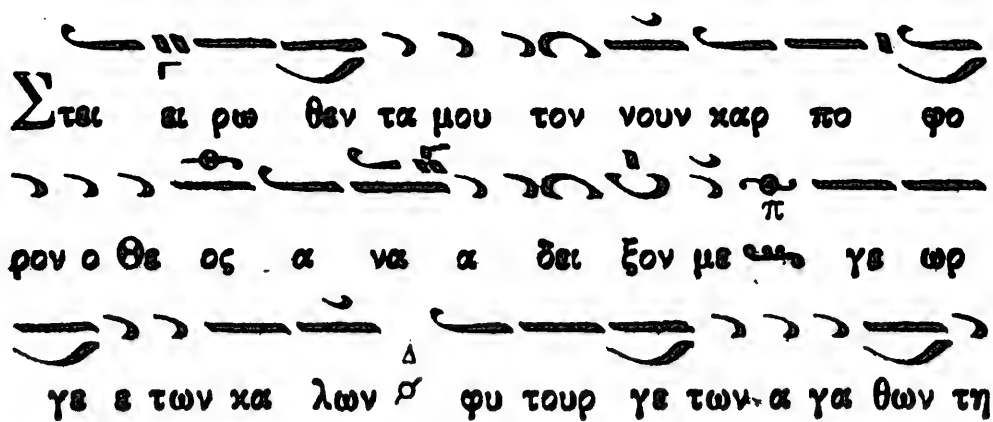 Στει ει ρω θεν τα μου τον νουν καρ πο φο
ρον ο Θε ος α να α δει ξον με π γε ωρ
γε ε των κα λων Δ φυ τουρ γε των α γα θων τη